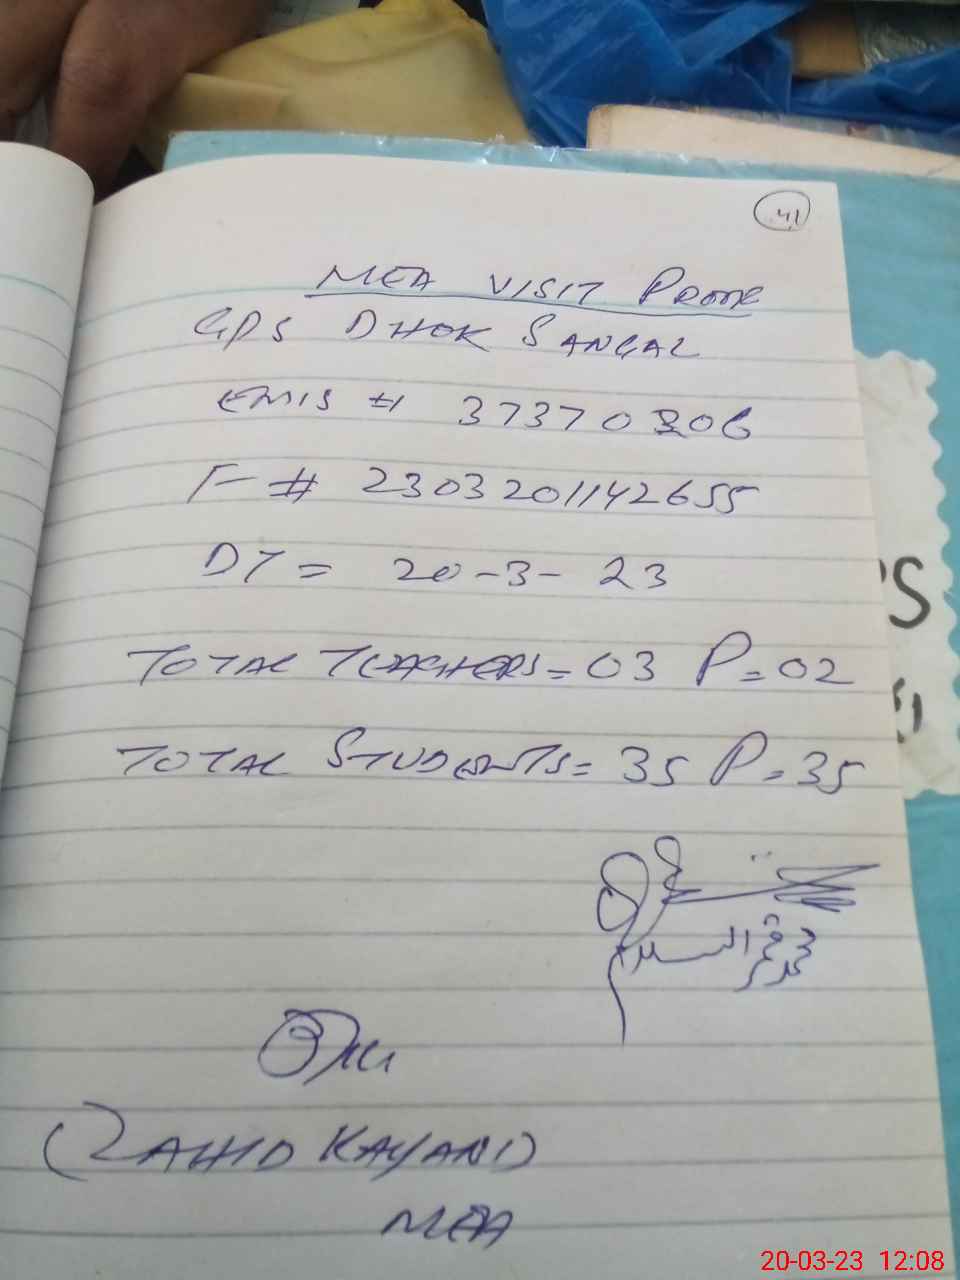 41
MEA VISIT PROOF
GPS DHOK SANGAL
EMIS # 37370306
F # 2303201142655
DT = 20-3-23
TOTAL TEACHERS = 03 P = 02
TOTAL STUDENTS = 35 P = 35
(ZAHID KAYANI)
MEA
PS
20-03-23 12:08